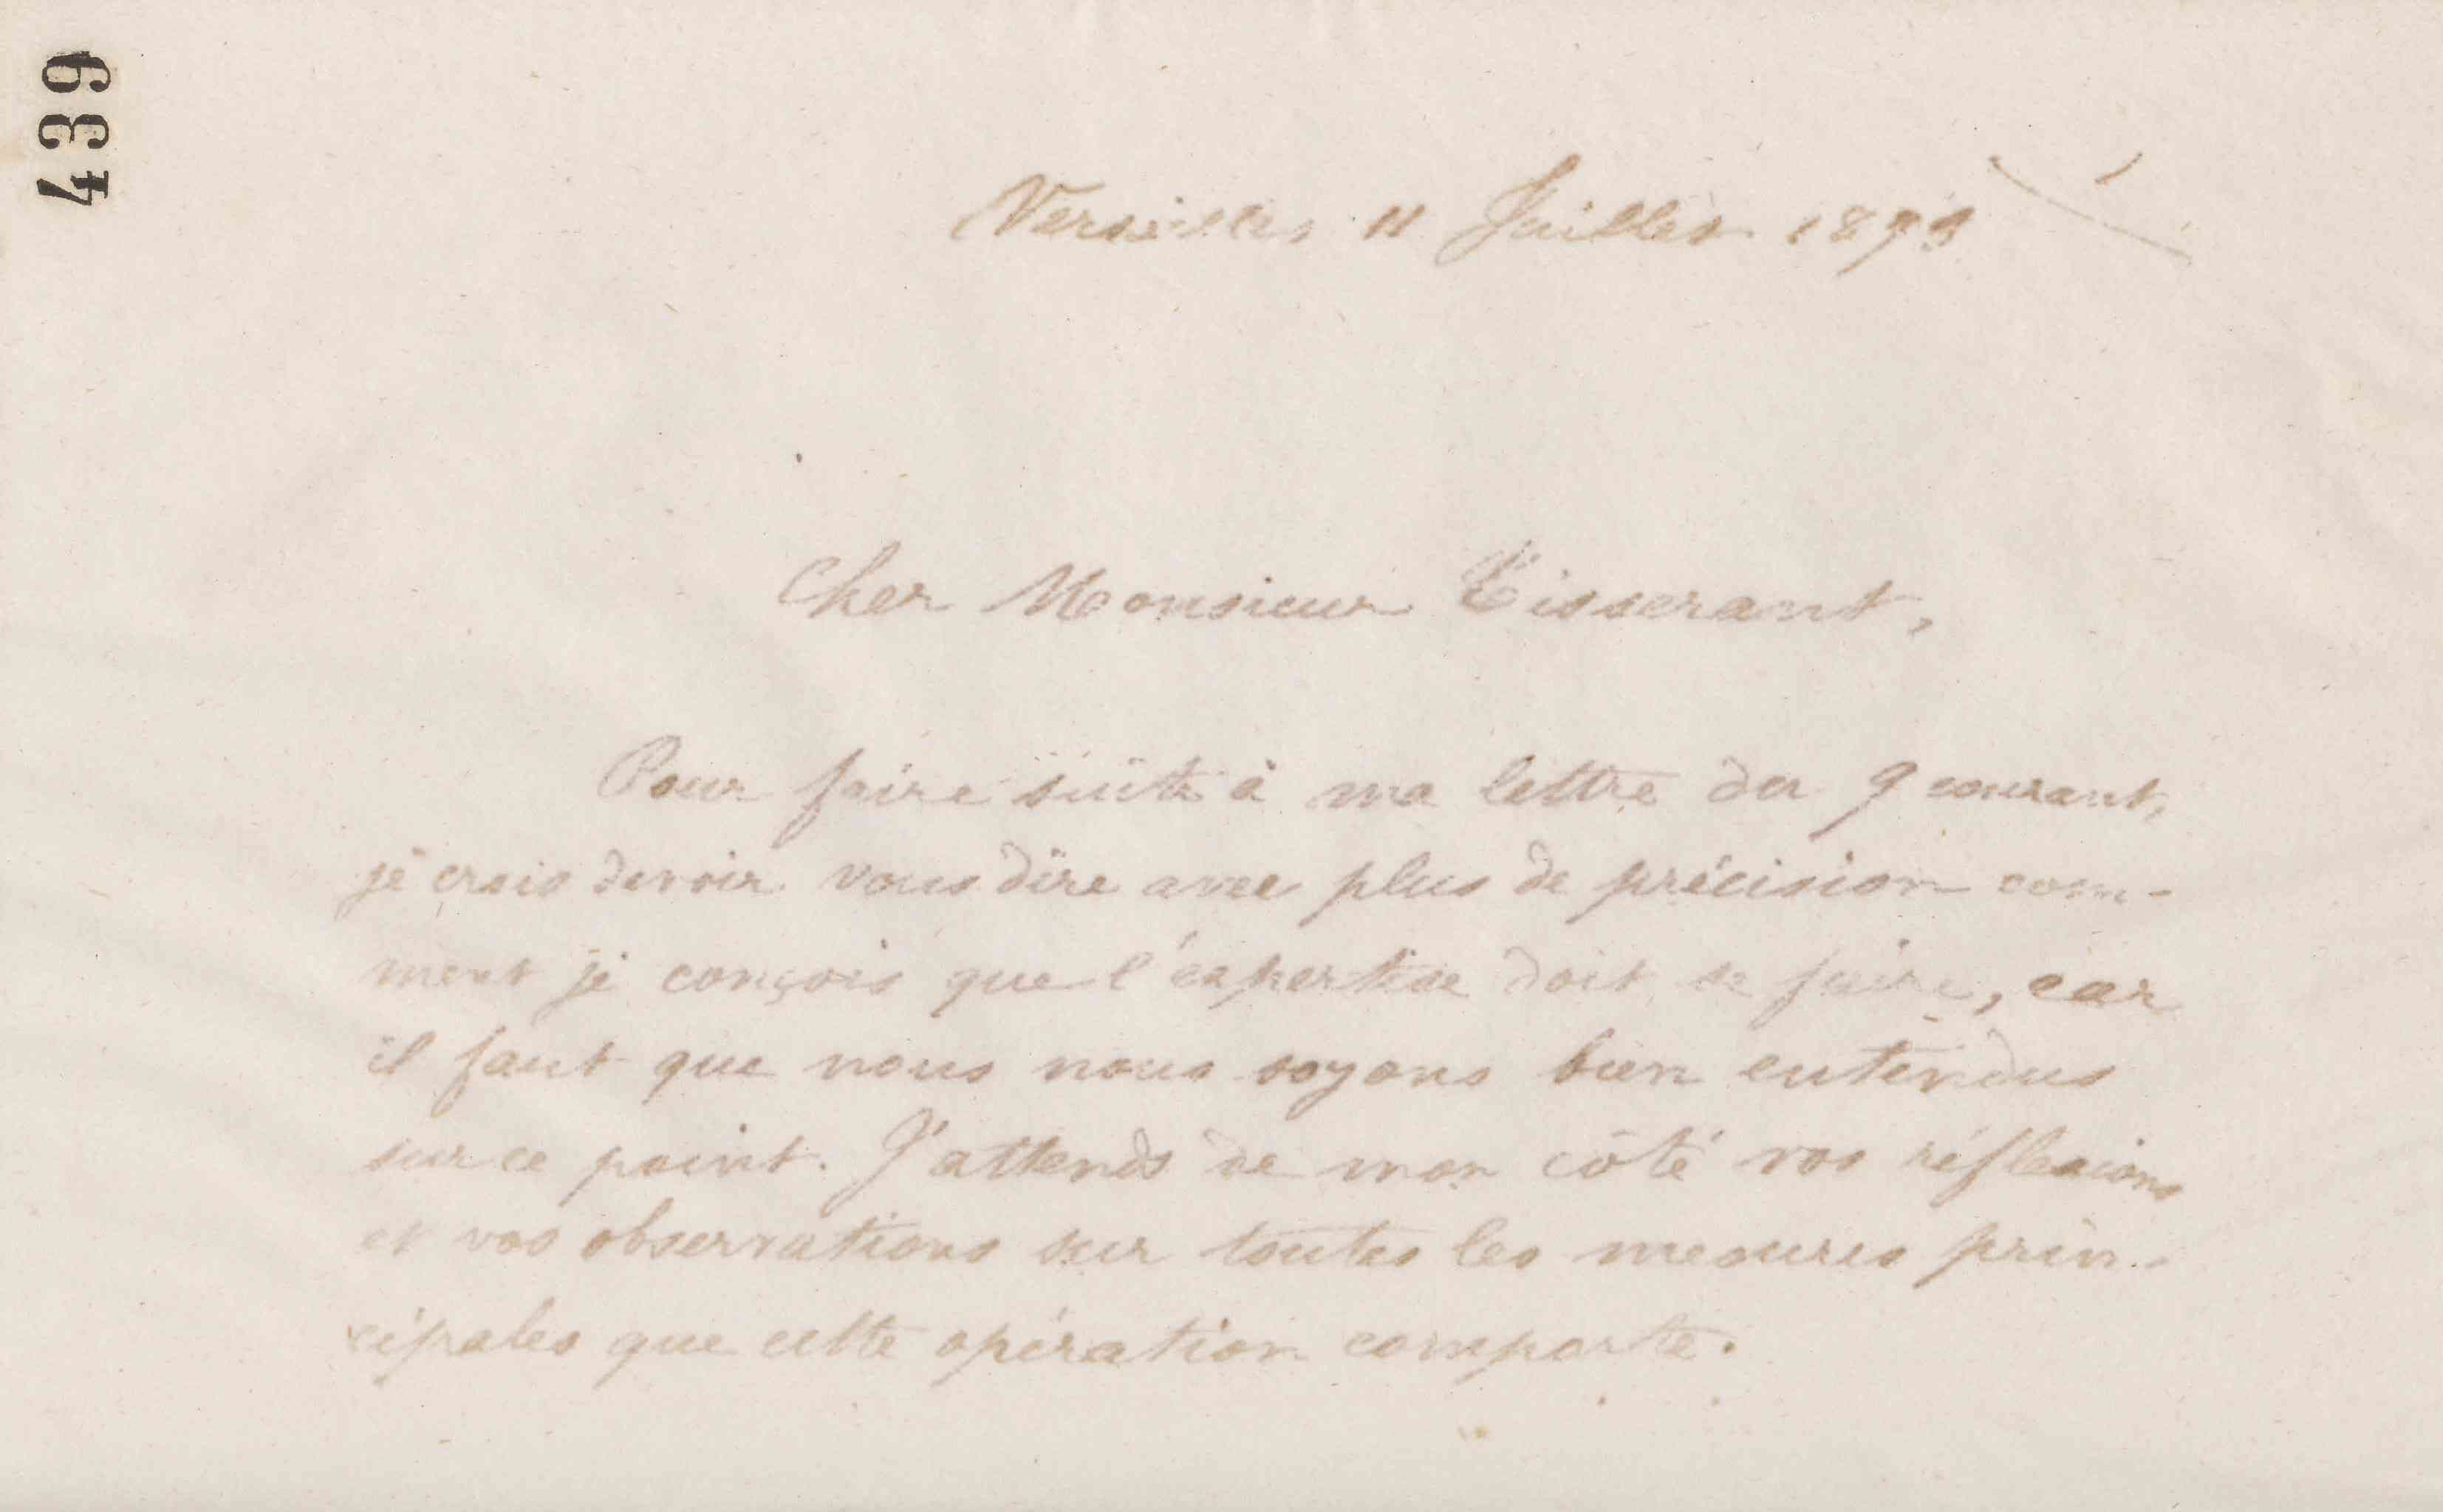 439
Versailles 11 Juillet 1879
Cher Monsieur Tisserant,
Pour faire suite à ma lettre du 9 courant,
je crois devoir vous dire avec plus de précision com-
ment je conçois que l'expertise doit se faire, car
il faut que nous nous soyons bien entendus
sur ce point. J'attends de mon côté vos réflexions
et vos observations sur toutes les mesures prin-
cipales que cette opération comporte.